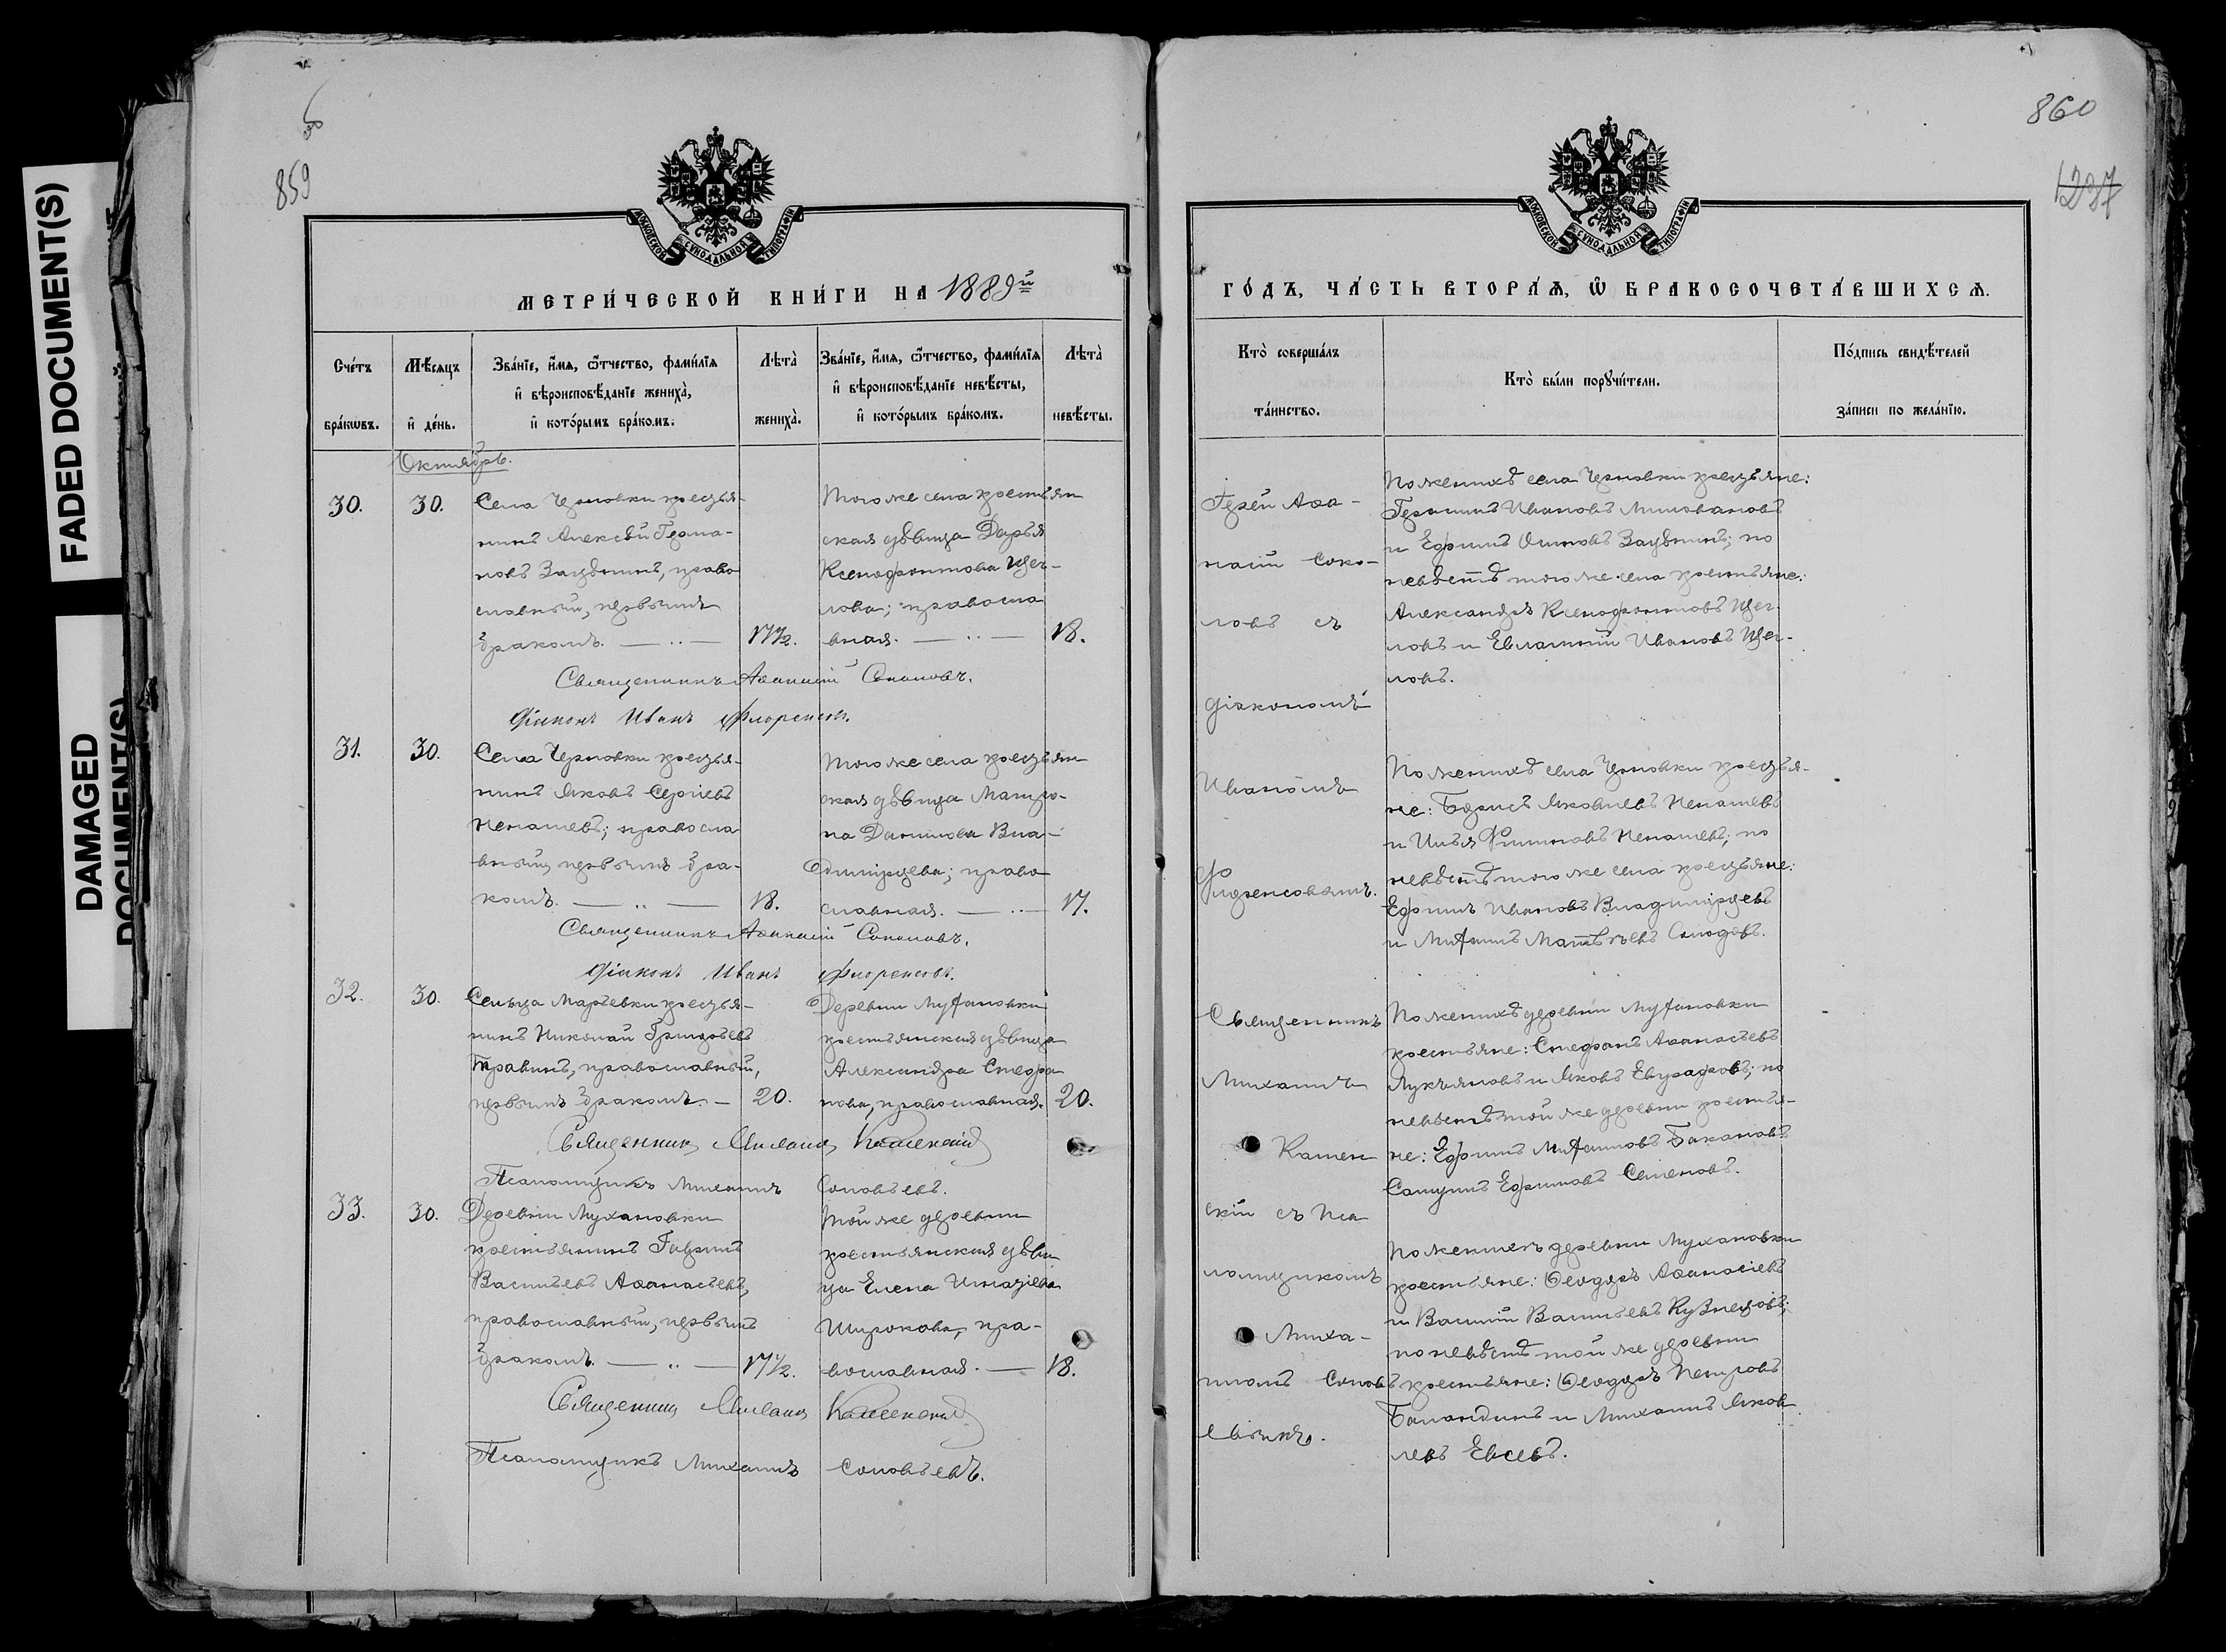 FADED DOCUMENT(S)
DAMAGED
DOCUMENT(S)
859
МОСКОВСКОЙ СѴНОДАЛЬНОЙ ТИПОГРАФІИ
МЕТРИ́ЧЕСКОЙ КНИ́ГИ НА 1889й
Сче́тъ
бра́кѡвъ.
Мѣ́сяцъ
и҆ де́нь.
Зва́нїе, и҆́мѧ, ѻ҆́тчество, фами́лїѧ
и҆ вѣроисповѣ́данїе жениха̀,
и҆ кото́рымъ бра́комъ.
Лѣта̀
жениха̀.
Зва́нїе, и҆́мѧ, ѻ҆́тчество, фами́лїѧ
и҆ вѣроисповѣ́данїе невѣ́сты,
и҆ кото́рымъ бра́комъ.
Лѣта̀
невѣ́сты.
Октябрь.
30.
30.
Села Черновки крестья-
нинъ Алексѣй Герма-
новъ Зацѣпинъ, право
славный, первымъ
бракомъ. — .. —
17½.
Того же села крестьян
ская дѣвица Дарья
Ксенофонтова Щег-
лова; правосла
вная. — .. —
18.
Священникъ Аѳанасій Соколовъ.
Діаконъ Иванъ Флоренсовъ.
31.
30.
Села Черновки крестья-
нинъ Яковъ Сергіевъ
Ненашевъ; правосла
вный, первымъ бра-
комъ. — .. —
18.
Того же села крестьян
ская дѣвица Матро-
на Данилова Вла-
димірцева; право
славная. — .. —
17.
Священникъ Аѳанасій Соколовъ.
Діаконъ Иванъ Флоренсовъ.
32.
30.
Сельца Марьевки крестья-
нинъ Николай Григорьевъ
Травинъ, православный,
первымъ бракомъ. —
20.
Деревни Муѳановки
крестьянская дѣвица
Александра Стефа
нова, православная.
20.
Священникъ Михаилъ Каменскій
Псаломщикъ Михаилъ Соловьевъ.
33.
30.
Деревни Мухановки
крестьянинъ Гаврилъ
Васильевъ Аѳанасьевъ,
православный, первымъ
бракомъ. — .. —
17½.
Той же деревни
крестьянская дѣви
ца Елена Игнатіева
Широкова, пра-
вославная. —
18.
Священникъ Михаилъ Каменскій
Псаломщикъ Михаилъ Соловьевъ.
860
1237
МОСКОВСКОЙ СѴНОДАЛЬНОЙ ТИПОГРАФІИ
ГО́ДЪ, ЧА́СТЬ ВТОРА́Ѧ, Ѡ҆ БРАКОСОЧЕТА́ВШИХСѦ.
Кто̀ соверша́лъ
та́инство.
Кто̀ бы́ли порꙋчи́тели.
По́дпись свидѣ́телей
за́писи по жела́нїю.
Іерей Аѳа-
насій Соко-
ловъ съ
діакономъ
Иваномъ
Флоренсовымъ.
Священникъ
Михаилъ
Камен
скій съ Пса
ломщикомъ
Миха-
иломъ Соловь
евымъ.
По женихѣ села Черновки крестьяне:
Герасимъ Ивановъ Миловановъ
и Ефимъ Осиповъ Зацѣпинъ; по
невѣстѣ того же села крестьяне:
Александръ Ксенофонтовъ Щег-
ловъ и Евлампій Ивановъ Щег-
ловъ.
По женихѣ села Черновки крестья-
не: Борисъ Яковлевъ Ненашевъ
и Илья Филиповъ Ненашевъ; по
невѣстѣ того же села крестьяне:
Ефимъ Ивановъ Владимірцевъ
и Миѳаилъ Матвѣевъ
По женихѣ деревни Муѳановки
крестьяне: Стефанъ Аѳанасьевъ
Лукьяновъ и Яковъ Евграфовъ; по
невѣстѣ той же деревни крестья-
не: Ефимъ Миѳаиловъ Бакановъ
Самуилъ Ефимовъ Семеновъ.
По женихѣ деревни Мухановки
крестьяне: Ѳеодоръ Аѳанасіевъ
и Василій Васильевъ Кузнецовъ;
по невѣстѣ той же деревни
крестьяне: Ѳеодоръ Петровъ
Баландинъ и Михаилъ Яков
левъ Евсевъ.